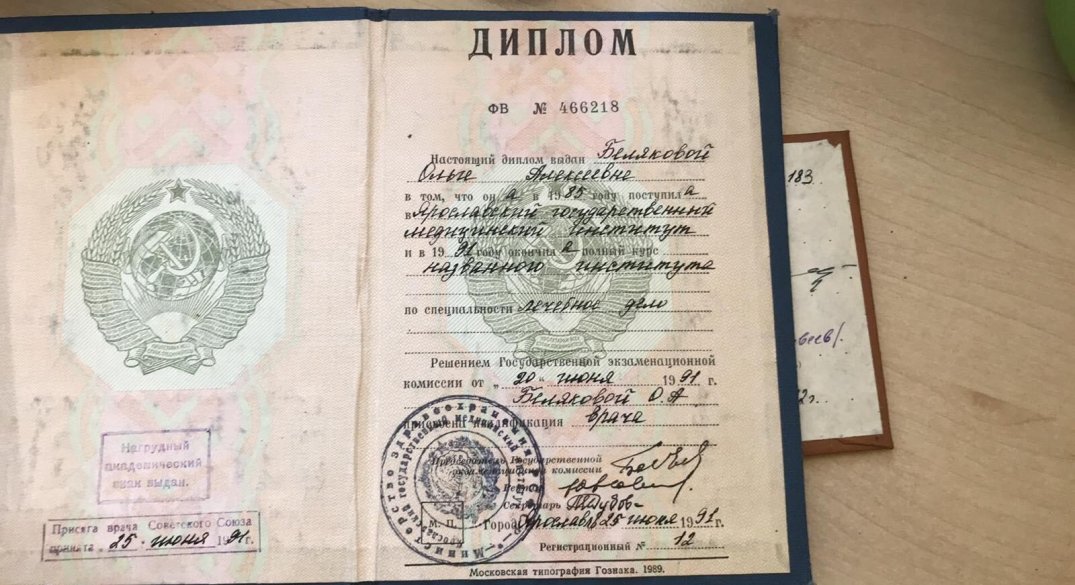 Нагрудный
академический
знак выдан.
Присяга врача Советского Союза
принята „ 25 “ июня 1991г.
ДИПЛОМ
ФВ № 466218
Настоящий диплом выдан Беляковой
Ольге Алексеевне
в том, что он а в 1985 году поступил а
в Ярославский государственный
медицинский институт
и в 1991 году окончил а полный курс
названного института
по специальности лечебное дело
Решением Государственной экзаменационной
комиссии от „ 20 “ июня 1991 г.
Беляковой О.А
присвоена квалификация врача
Председатель Государственной
экзаменационной комиссии
Ректор
Секретарь
М. П.
Город Ярославль 25 июня 1991 г.
Регистрационный № 12
Московская типография Гознака. 1989.
183.